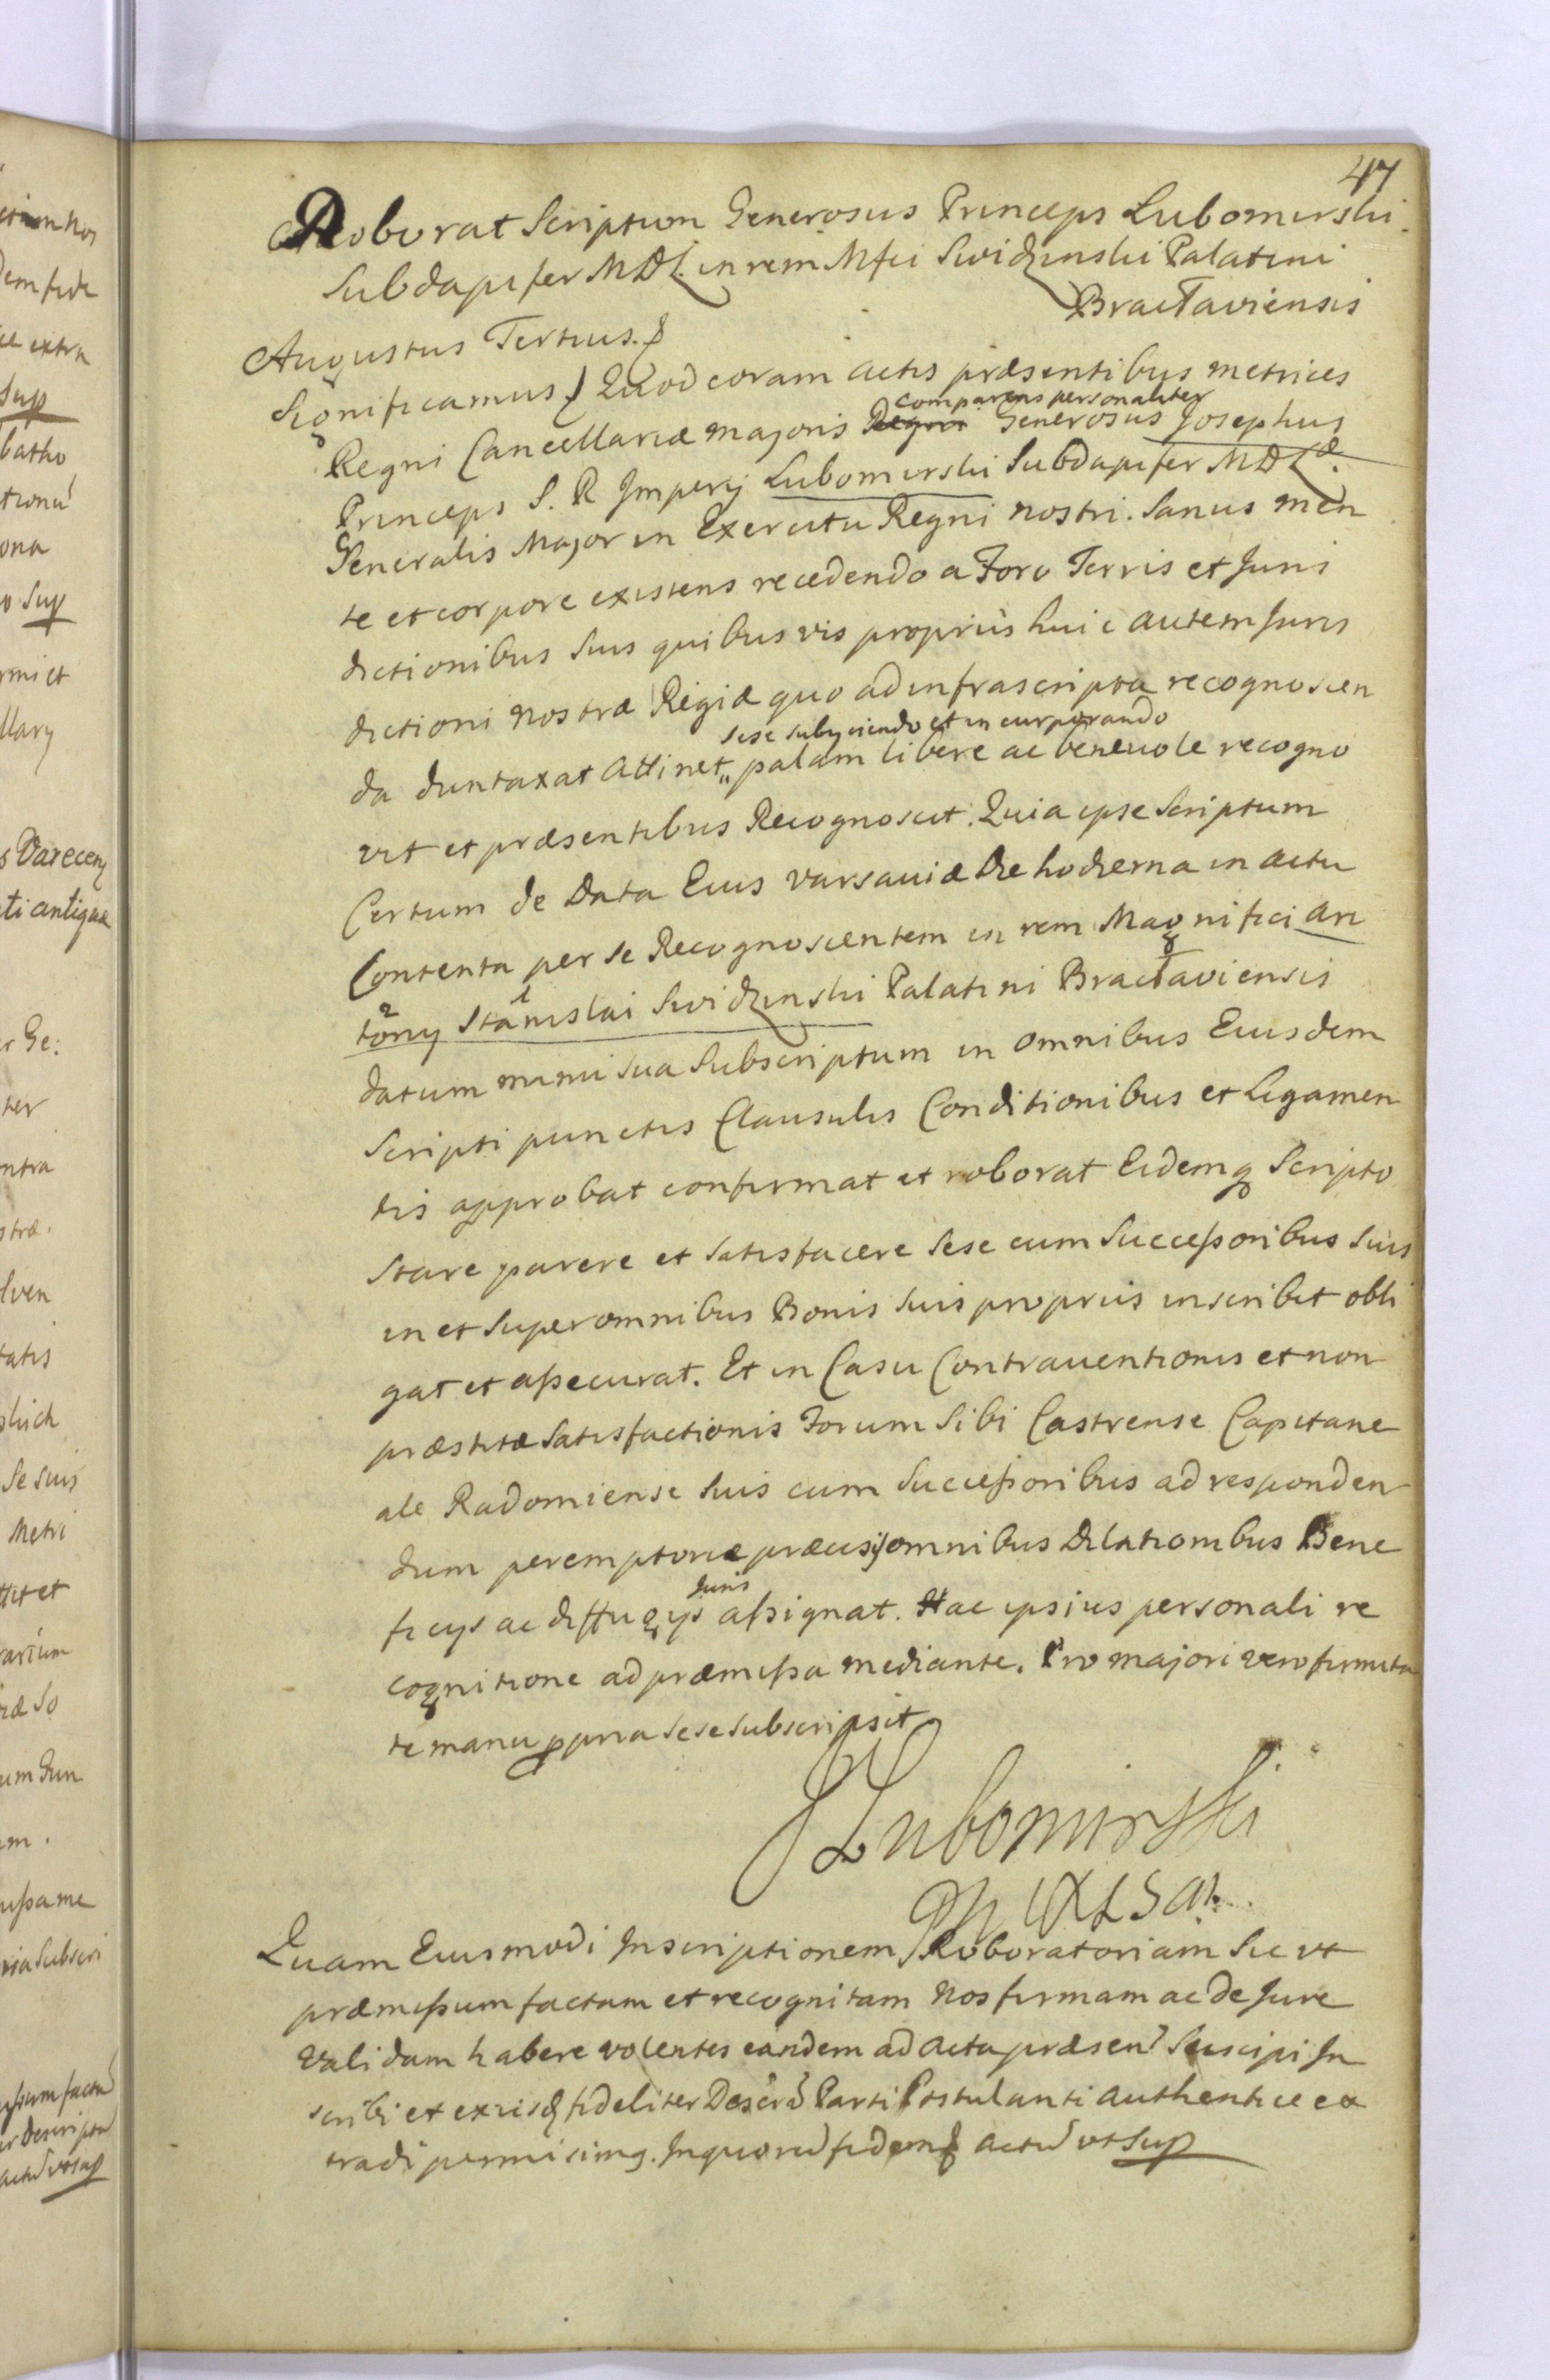 47
Roborat Scriptum Generosus Princeps Lubomirski
Subdapifer MDL. in rem Mfci Swidzinski Palatini
Bractaviensis
Augustus Tertius.
Significamus Quod coram actis præsentibus metrices
comparens personaliter
Regni Cancellariæ majoris Regni Generosus Josephus
Princeps S. R Imperij Lubomirski Subdapifer MDLæ.
Generalis Major in Exercitu Regni nostri. Sanus men
te et corpore existens recedendo a Foro Terris et Juris
dictionibus suis quibusvis proprijs huic autem Juris
dictioni nostræ Regiæ quo ad infrascripta recognoscen
sese subijciendo et incorporando
da duntaxat attinet, palam libere ac benevole recogno
vit et præsentibus Recognoscit. Quia ipse Scriptum
Certum de Data Eius varsaviæ Die hodierna in actu
Contenta per se Recognoscentem in rem Magnifici An
tonij Stanislai Swidzinski Palatini Bractaviensis
datum manu sua Subscriptum in omnibus Eiusdem
Scripti punctis Clausulis Conditionibus et Ligamen
tis approbat confirmat et roborat Eidemq Scripto
Stare parere et Satisfacere Sese cum Successoribus Suis
in et Super omnibus Bonis Suis proprijs inscribit obli
gat et assecurat. Et in Casu Contraventionis et non
præstitæ Satisfactionis Forum Sibi Castrense Capitane
ale Radomiense Suis cum Successoribus ad responden
dum peremptorie præcisis omnibus Dilationibus Bene
Juris
ficijs ac diffugijs assignat. Hac ipsius personali re
cognitione ad præmissa mediante. Pro majori vero firmita
te manu ppria sese subscripsit
J Lubomirski
Quam Eiusmodi Inscriptionem Roboratoriam Sic vt
præmissum factam et recognitam Nos firmam ac de Jure
Validam habere volentes eandem ad Acta præsen Suscipi In
scribi et ex ijsq fideliter Parti Postulanti authentice ex
tradi permisimq. In quorũ fidem actũ vt Sup